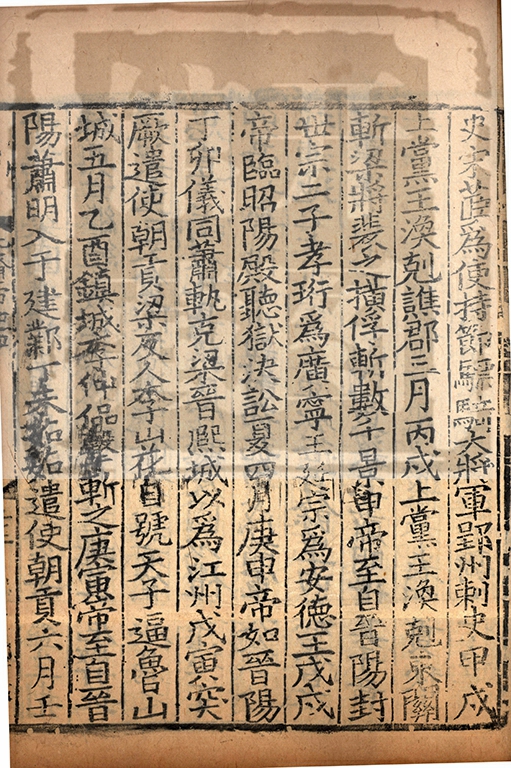 史宋為使持節驃騎大將軍郢州刺史甲戌
上黨王渙剋譙郡三月丙戌上黨王渙剋東關
斬梁將裴之橫俘斬數千景申帝至自晉陽封
世宗二子孝珩爲廣寧王延宗爲安德王戊戌
帝臨昭陽殿聽獄決訟夏四月庚申帝如晉陽
丁卯儀同蕭軌克梁晉熙城以爲江州戊寅突
厥遣使朝貢梁反人李山花自號天子逼魯山
城五月乙酉鎮城李仲侶擊斬之庚寅帝至自晉
陽蕭明入于建鄴丁未茹茹遣使朝貢六月壬